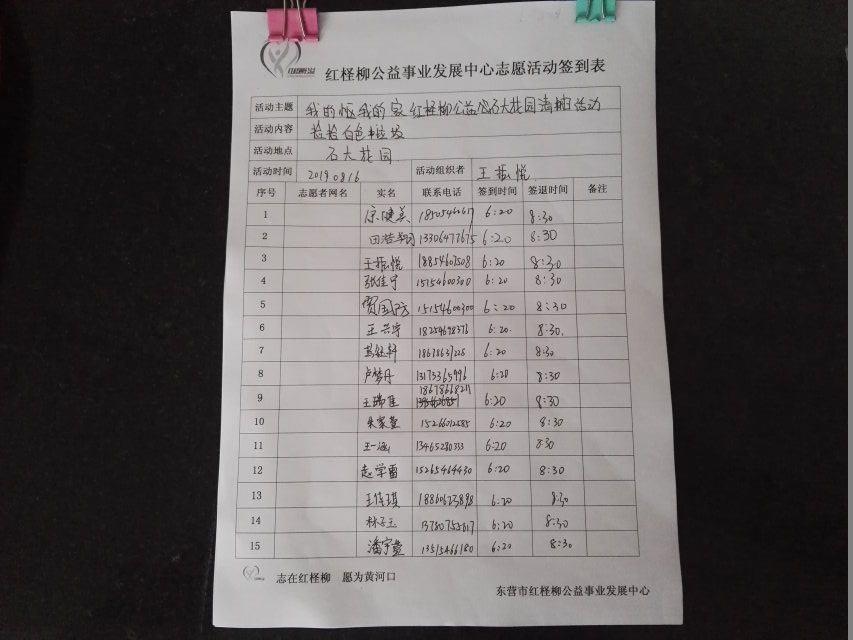 红柽柳公益事业发展中心志愿活动签到表
活动主题 我的河我的家红柽柳公益 石大花园清捡活动
活动内容 捡拾白色垃圾
活动地点 石大花园
活动时间 20190816 活动组织者 王振悦
序号 志愿者网名 实名 联系电话 签到时间 签退时间 备注
1 6:20 8:30
2 13306477675 6:20 8:30
3 王振悦 18854607508 6:20 8:30
4 张佳宁 15154600300 6:20 8:30
5 贾国防 15154600300 6:20 8:30
6 王兴宇 18254698376 6:20. 8:30.
7 18678637226 6:20 8:30
8 卢梦丹 13173365996 6:20 8:30
9 王瑞佳 18678668211 6:20 8:30
10 朱家萱 15266012585 6:20 8:30
11 王一涵 13465280333 6:20 8:30
12 赵学雷 15265464430 6:20 8:30
13 18860623898 6:20 8:30
14 林子玉 13780755817 6:20 8:30
15 潘宇萱 13515466180 6:20 8:30
志在红柽柳 愿为黄河口
东营市红柽柳公益事业发展中心